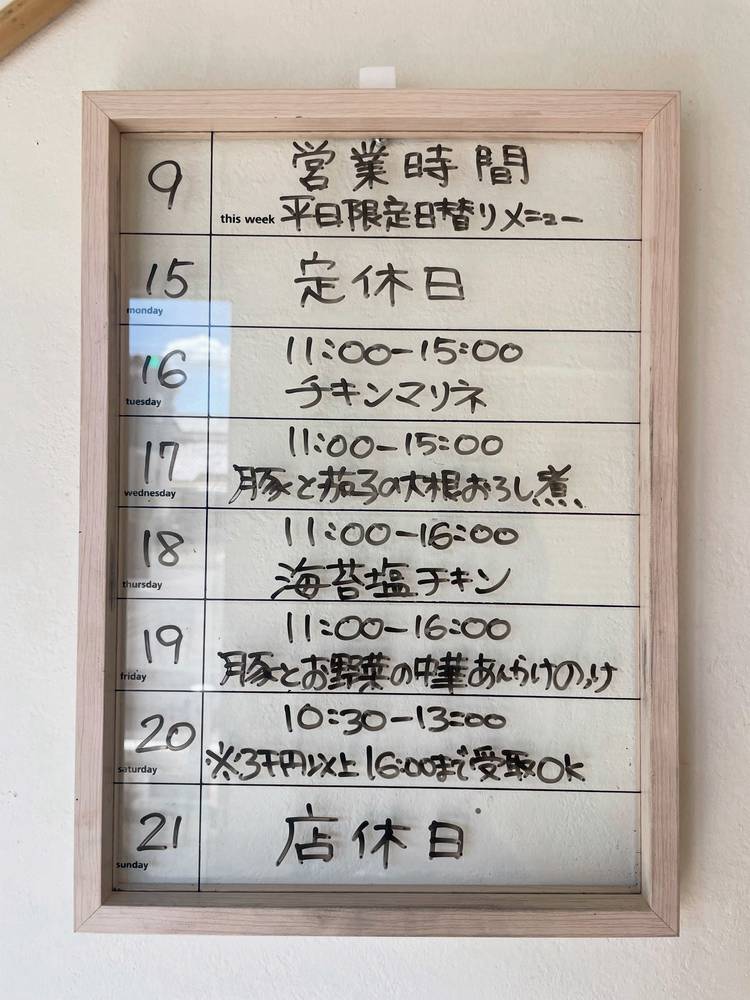 9 営業時間
this week 平日限定日替りメニュー
15 定休日
monday
16 11:00-15:00
tuesday チキンマリネ
17 11:00-15:00
wednesday 豚と茄子の大根おろし煮
18 11:00-16:00
thursday 海苔塩チキン
19 11:00-16:00
friday 豚とお野菜の中華あんかけのっけ
20 10:30-13:00
saturday ※3千円以上16:00まで受取OK
21 店休日
sunday